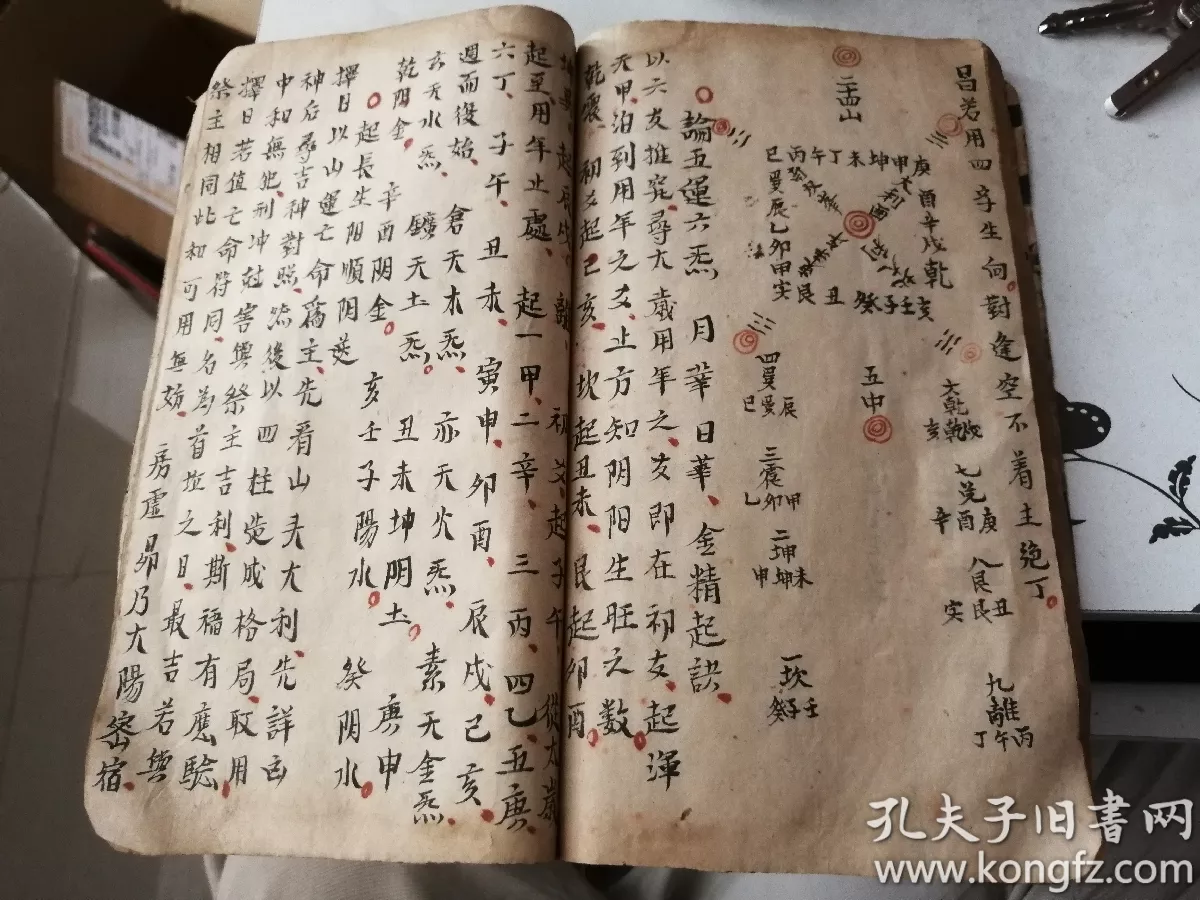 昌若用四辛生向對逢空不着主绝丁
二十四山
巳丙午丁未坤申庚
酉辛戌乾
亥壬子癸
丑艮
辰乙卯甲
五中
四巽
辰巽巳
三震
甲卯乙
二坤
未坤申
一坎
壬子癸
六乾
戌乾亥
七兑
庚酉辛
八艮
丑艮
九離
丙午丁
論五運六炁 月華日華金精起訣
以六爻推究尋太歲用年之爻即在初爻起渾
天甲泊到用年之爻止方知阴阳生旺之数
乾震初爻起巳亥 坎起丑未 艮起卯酉
起至用年止處 起一甲二辛三丙四乙五庚
六丁 子午 丑未 寅申 卯酉 辰戌 巳亥
週而復始 倉天木炁 亦天火炁 素天金炁
玄天水炁 鑛天土炁 丑未坤阴土 庚申
乾阴金 辛酉阴金 亥壬子陽水 癸阴水
起長生阳順阴逆
擇日以山運亡命爲主先看山头大利先詳古
神后尋吉神對照然後以四柱荧成格局取用
中和無犯刑冲尅害與祭主吉利斯福有應驗
擇日若值亡命符同名為首垃之日最吉若與
祭主相同此和可用無妨 房虛昴乃太陽密宿
孔夫子旧书网
www.kongfz.com